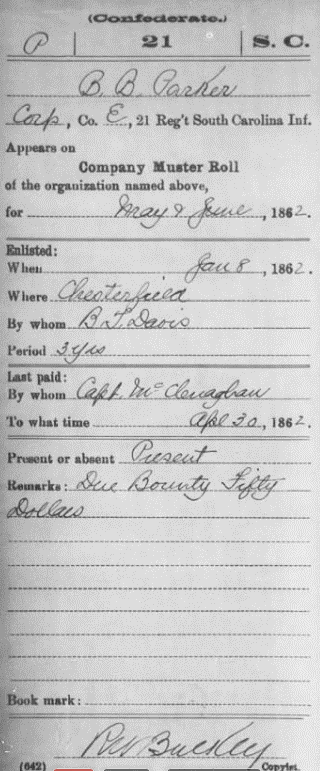 (Confederate.)
P | 21 | S. C.
B. B. Parker
Corp, Co. E, 21 Reg't South Carolina Inf.
Appears on
Company Muster Roll
of the organization named above,
for May & June, 1862.
Enlisted:
When Jan 8, 1862.
Where Chesterfield
By whom B. T. Davis
Period 3 yrs
Last paid:
By whom Capt. McClenaghan
To what time Apl 30, 1862.
Present or absent Present
Remarks: Due Bounty Fifty
Dollars
Book mark:
Buckley
(642) Copyist.